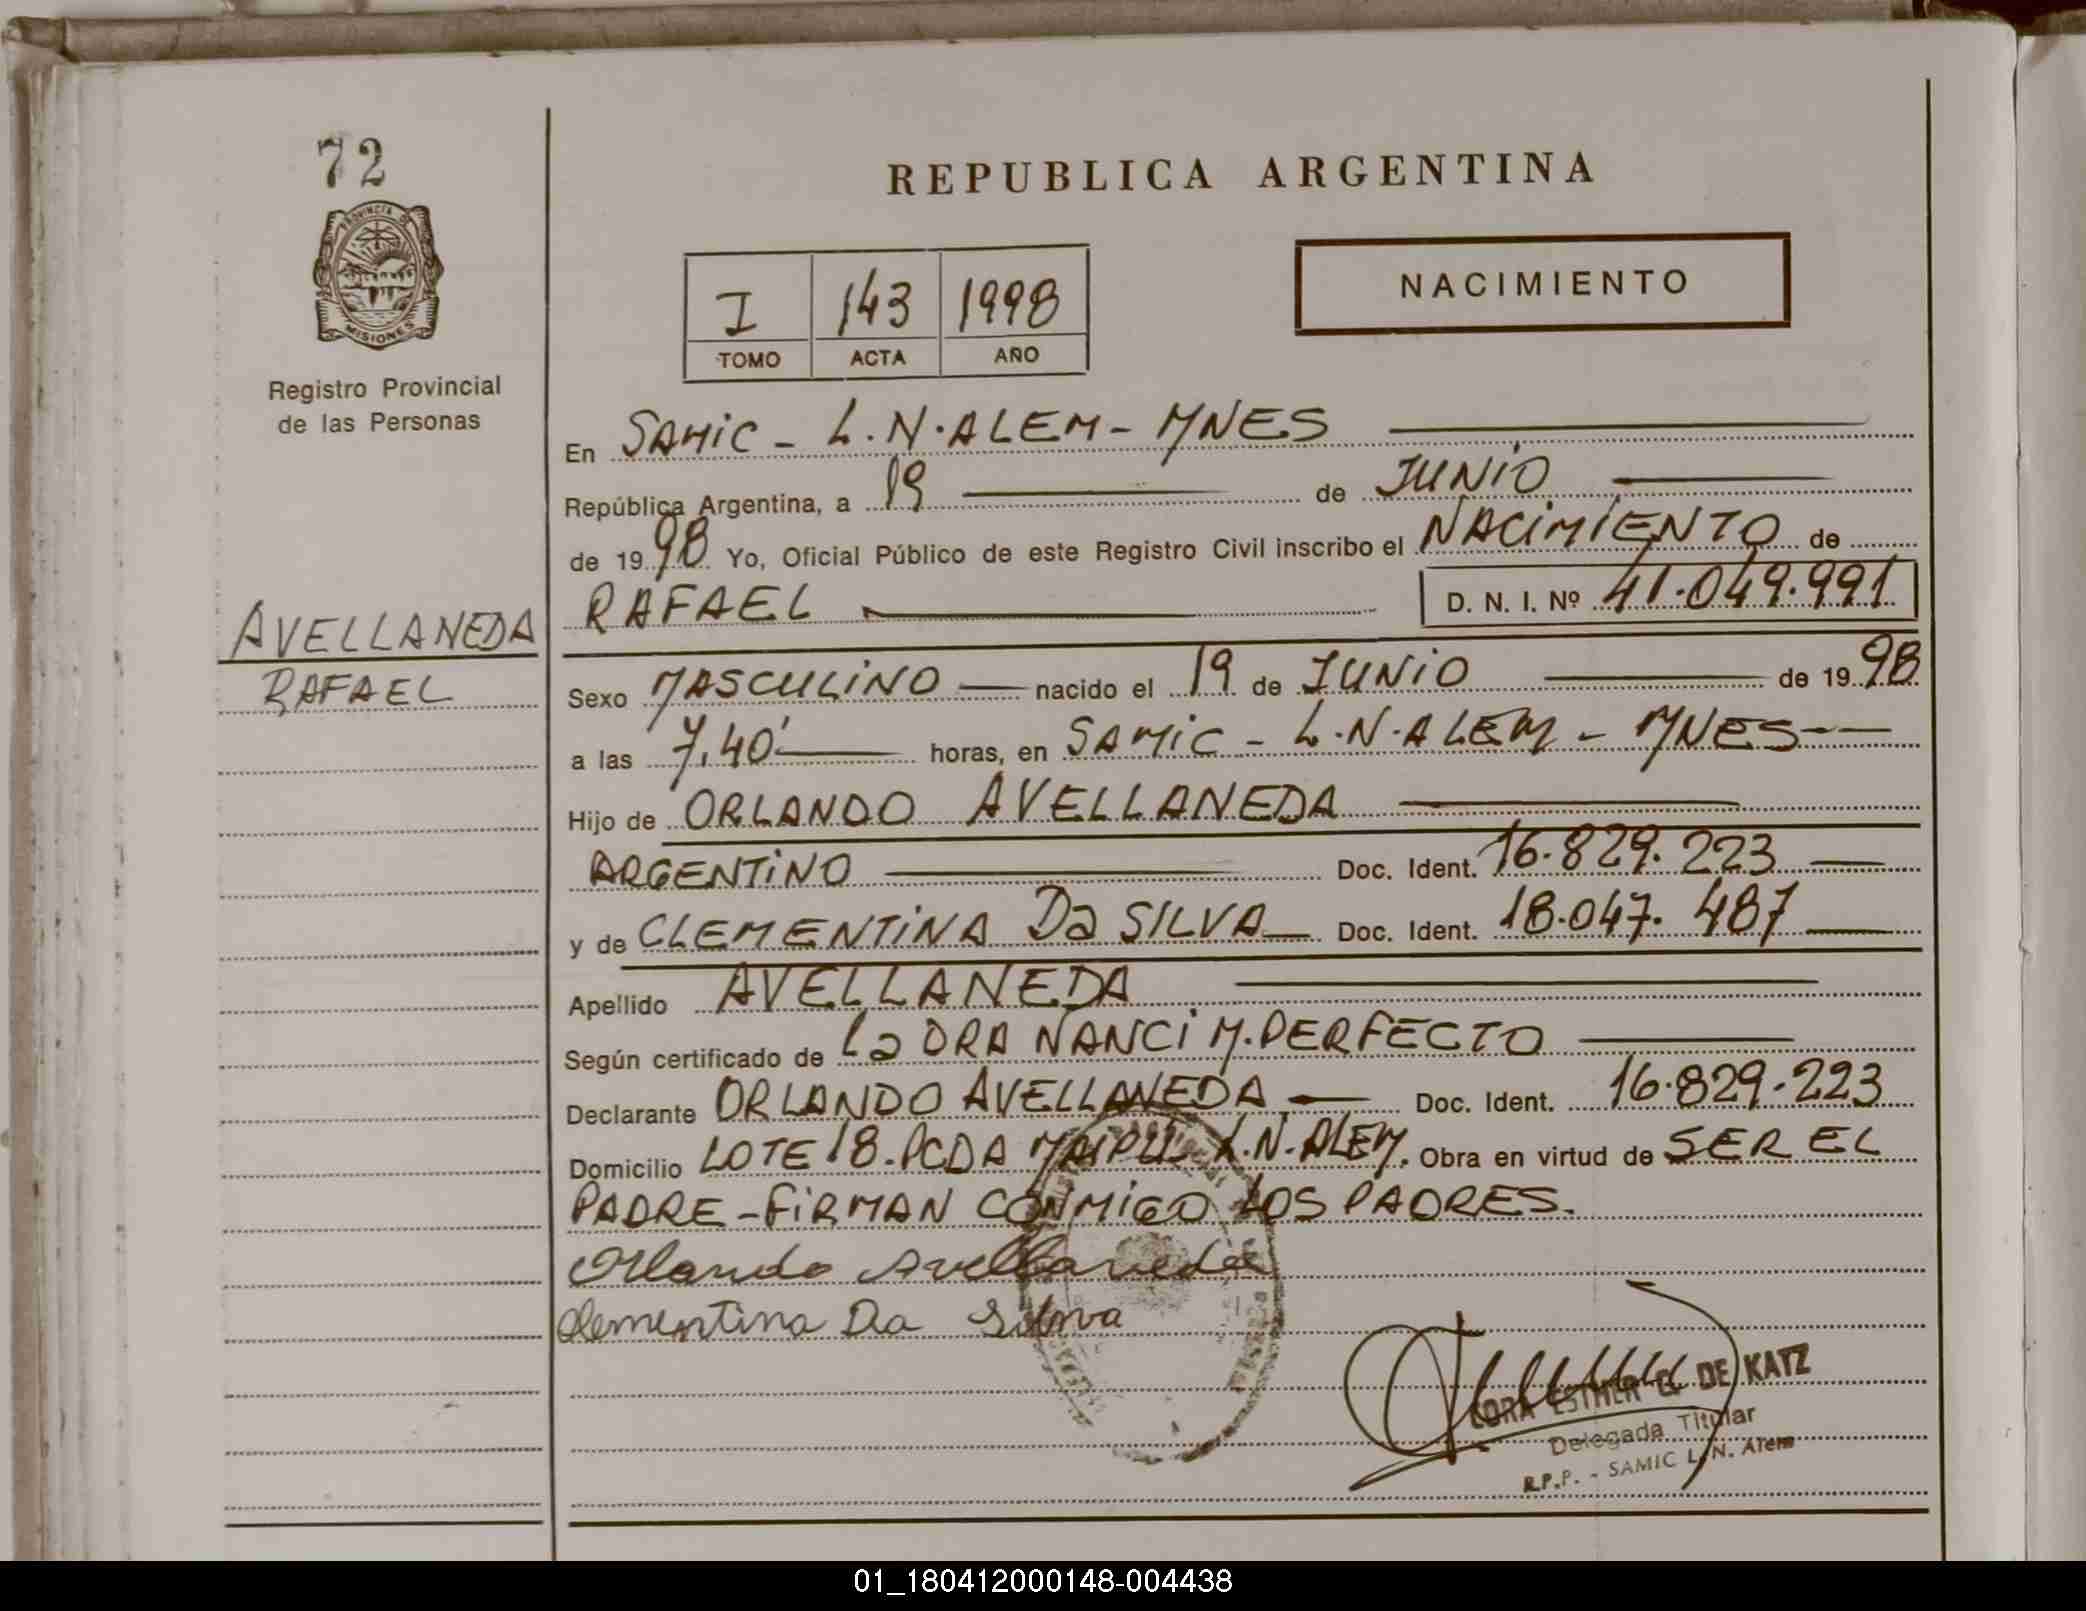 72
PROVINCIA DE
MISIONES
Registro Provincial
de las Personas
AVELLANEDA
RAFAEL
REPUBLICA ARGENTINA
I 143 1998
TOMO ACTA AÑO
NACIMIENTO
En SAMIC - L.N.ALEM - MNES
República Argentina, a 19 de JUNIO
de 1998 Yo, Oficial Público de este Registro Civil inscribo el NACIMIENTO de
RAFAEL D. N. I. Nº 41.049.991
Sexo MASCULINO nacido el 19 de JUNIO de 1998
a las 7,40' horas, en SAMIC - L.N.ALEM - MNES--
Hijo de ORLANDO AVELLANEDA
ARGENTINO Doc. Ident. 16.829.223
y de CLEMENTINA Da SILVA Doc. Ident. 18.047.487
Apellido AVELLANEDA
Según certificado de La DRA NANCI M. PERFECTO
Declarante ORLANDO AVELLANEDA Doc. Ident. 16.829.223
Domicilio LOTE 18. PCDA MAIPU L.N.ALEM. Obra en virtud de SER EL
PADRE - FIRMAN CONMIGO LOS PADRES.
Orlando Avellaneda
Clementina Da Silva
ESTHER G. DE KATZ
Delegada Titular
R.P.P. - SAMIC L. N. Alem
01_180412000148-004438